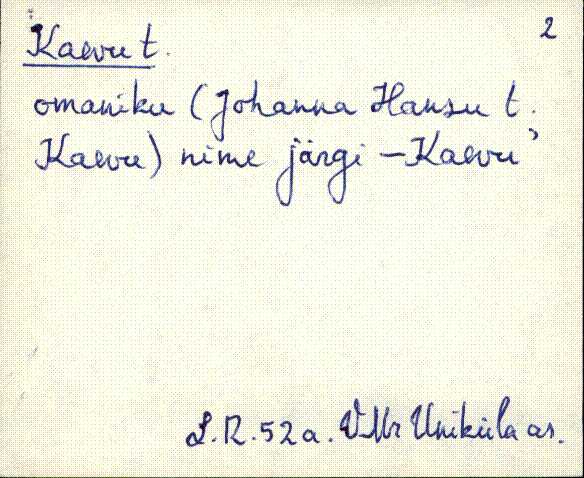 2
Kaevu t.
omaniku (Johanna Hansu t.
Kaevu) nime järgi – Kaevu,
L.R. 52a. VMr Uniküla as.